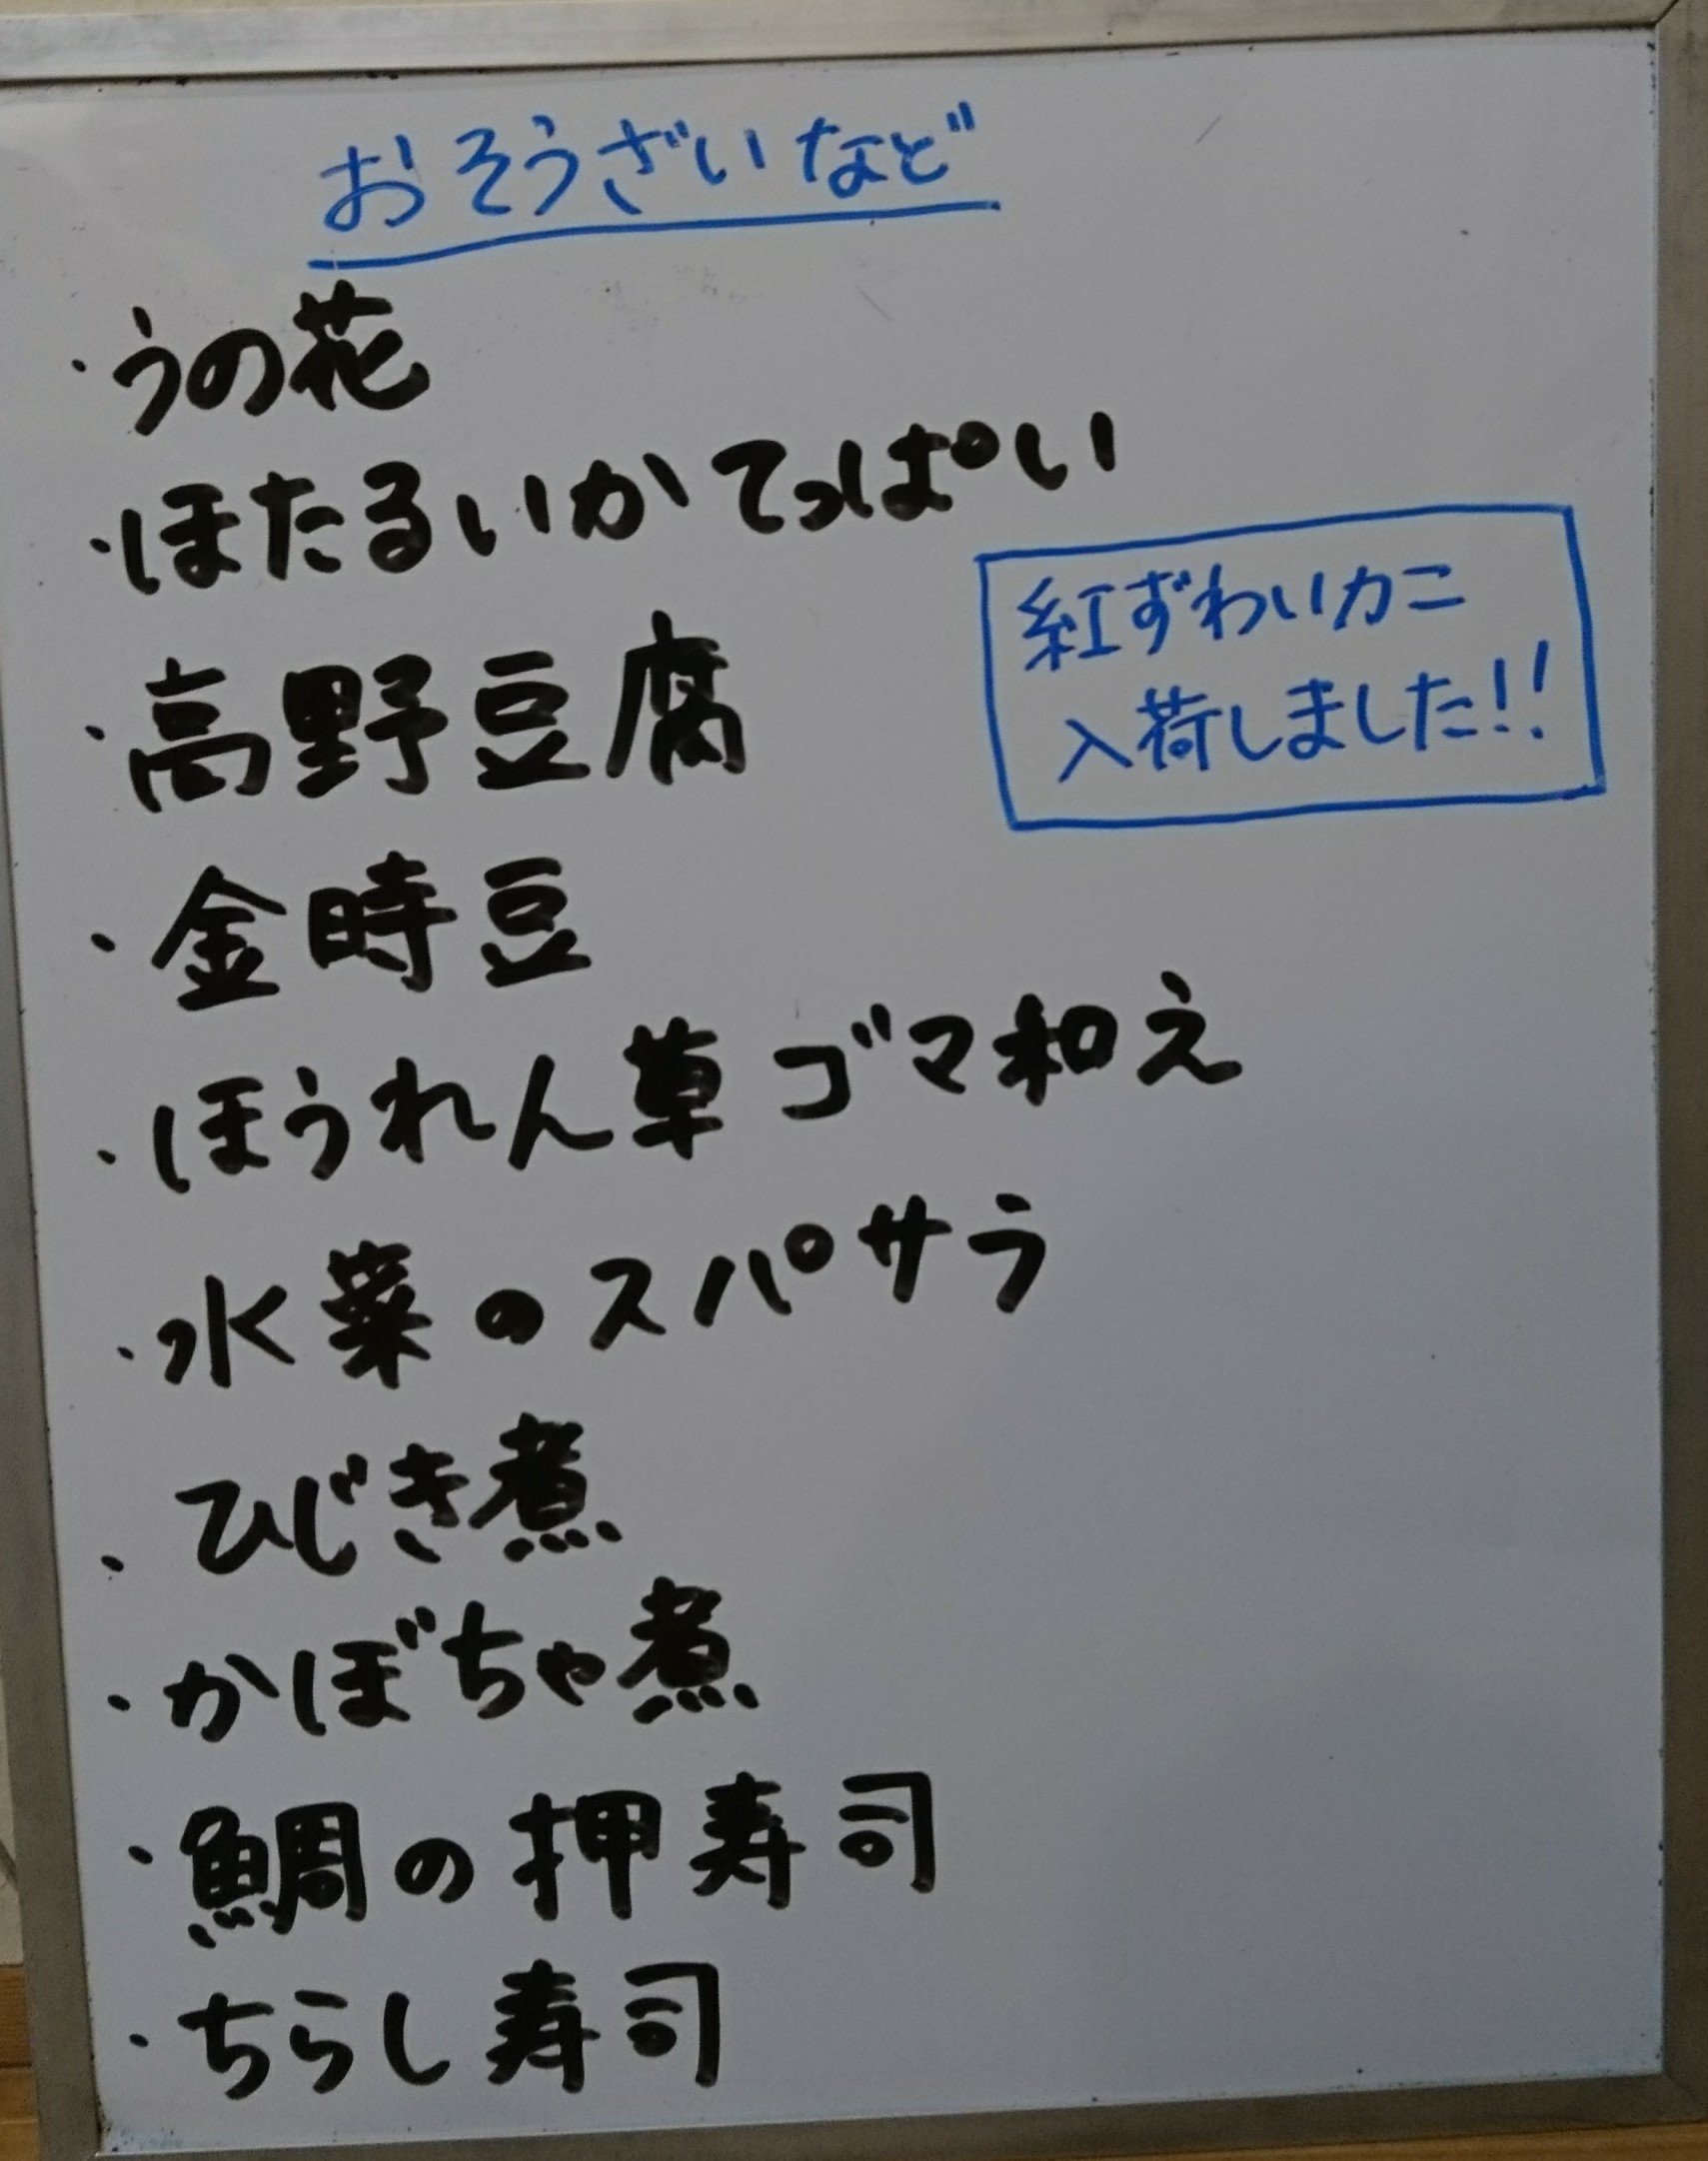 おそうざいなど
・うの花
・ほたるいかてっぱい
・高野豆腐
・金時豆
・ほうれん草ゴマ和え
・水菜のスパサラ
・ひじき煮
・かぼちゃ煮
・鯛の押寿司
・ちらし寿司
紅ずわいカニ
入荷しました!!